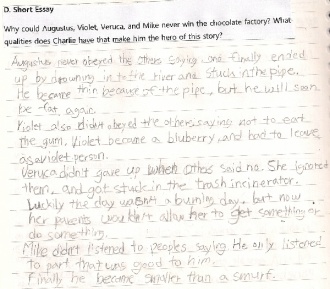 D. Short Essay
Why could Augustus, Violet, Veruca, and Mike never win the chocolate factory? What
qualities does Charlie have that make him the hero of this story?
Augustus never obeyed the others saying and finally ended
up by drowning into the river and stuck in the pipe.
He became thin because of the pipe, but he will soon
be fat, again.
Violet also didn't obeyed the others saying not to eat
the gum. Violet become a bluberry and had to leave
as a violet person.
Veruca didn't gave up when others said no. She ignored
them, and got stuck in the trash incinerator.
Luckily the day wasn't a burning day, but now
her parents wouldn't allow her to get something or
do something.
Mike didn't listened to peoples saying He only listened
to part that was good to him.
Finally he became smaller than a smurf.